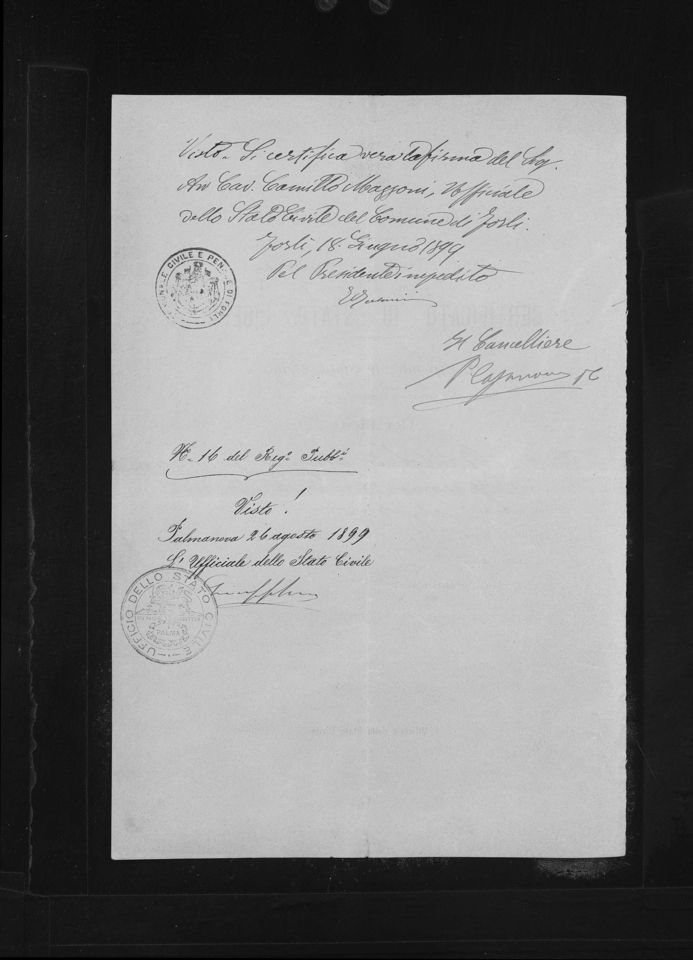 Visto - Si certifica vera la firma del Sig.
Av Cav. Camillo Mazzoni, Ufficiale
dello Stato Civile del Comune di Forlì.
Forlì, 18. Giugno 1899
Pel Presidente impedito
Il Cancelliere
TRIBUNALE CIVILE E PENALE DI FORLÌ
N. 16 del Reg.º Pubb.ni
Visto!
Palmanova 26 agosto 1899
L'Ufficiale dello Stato Civile
UFFICIO DELLO STATO CIVILE
PALMA